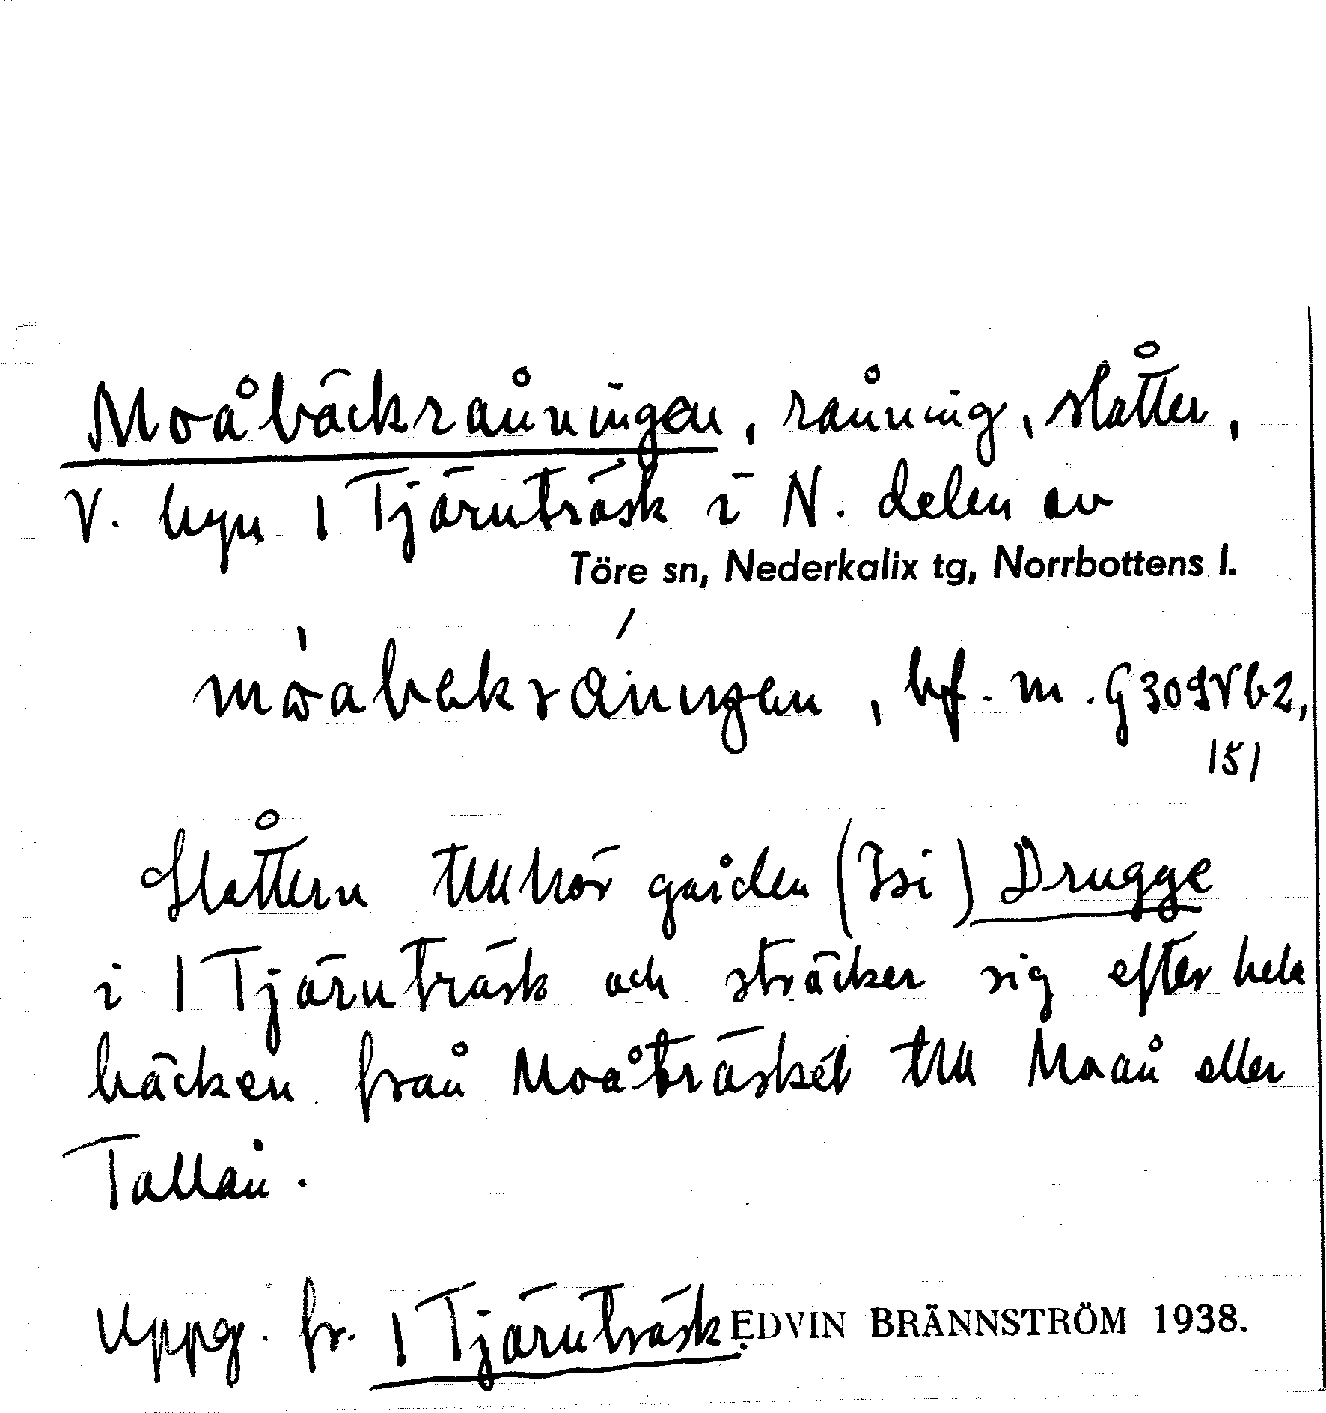 Moåbäckråningen, råning, slåtter,
V. byn 1 Tjärnträsk i N. delen av
Töre sn, Nederkalix tg, Norrbottens l.
bf. m.
151
Slåttern tillhör gården (Isi) Drugge
i 1 Tjärnträsk och sträcker sig efter hela
bäcken från Moåträsket till Moån eller
Tallån.
Uppg. fr. 1 Tjärnträsk. EDVIN BRÄNNSTRÖM 1938.